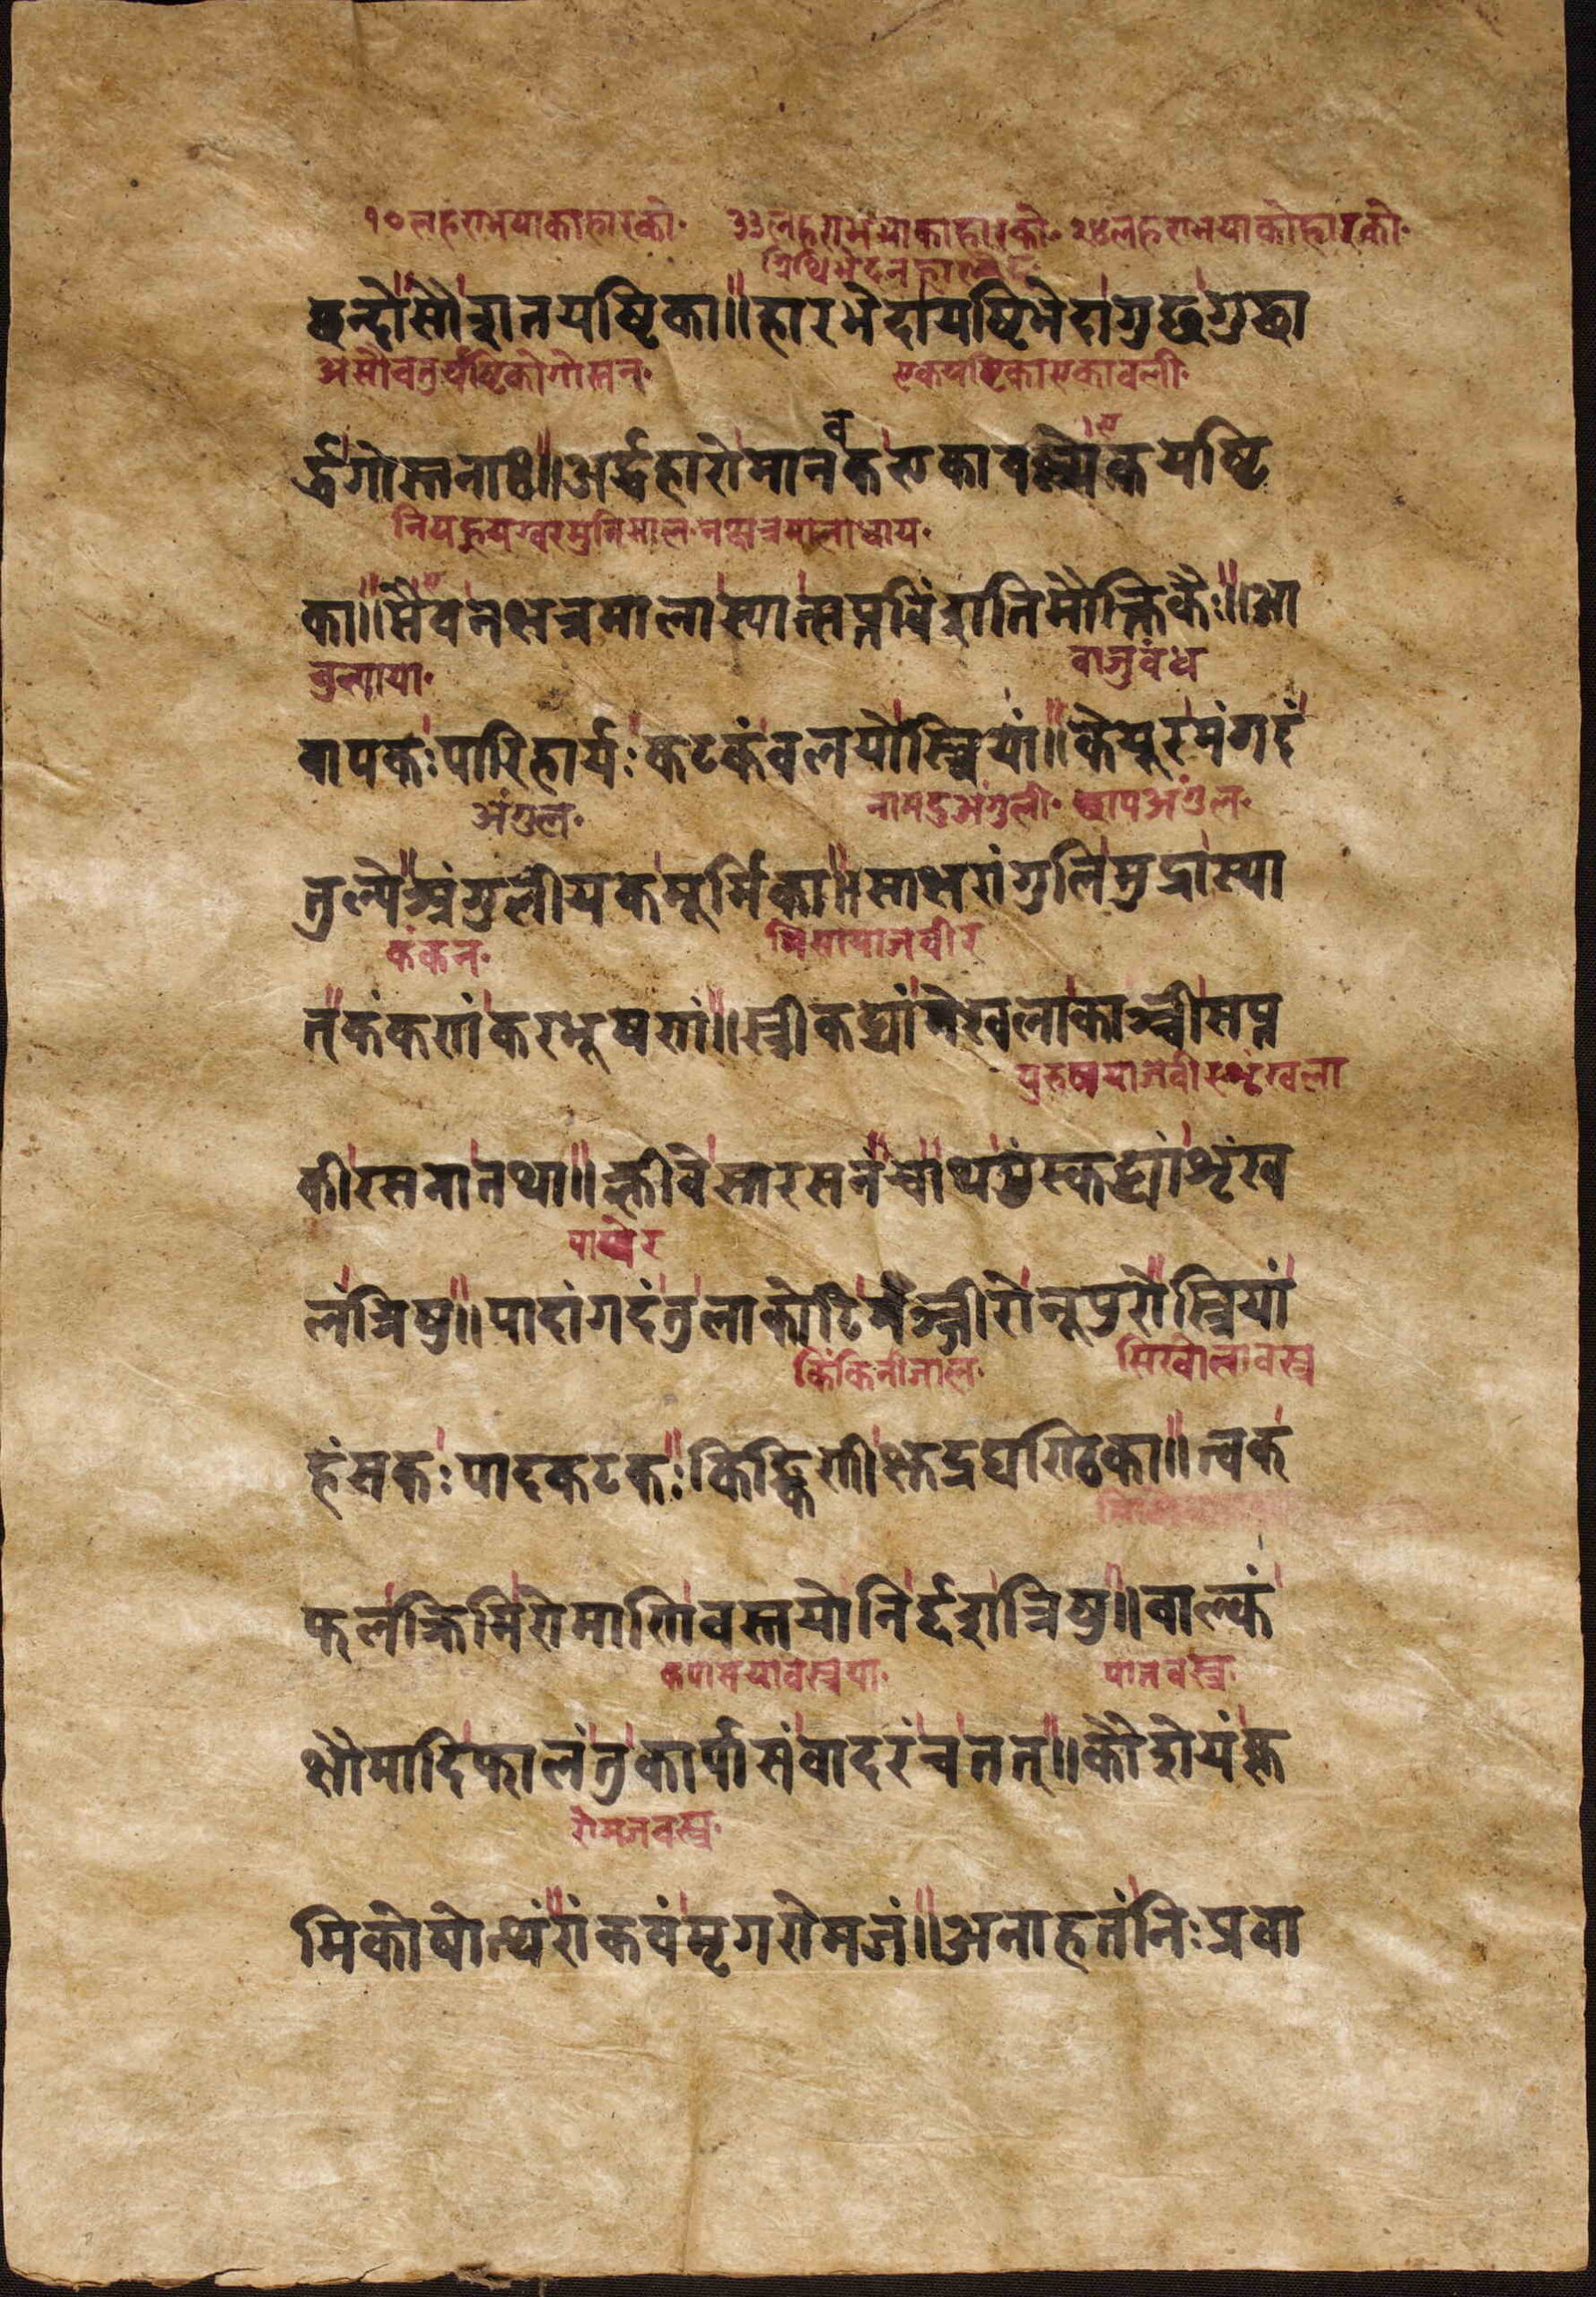 १० लहराभयाकाहारको. ३३ लहराभयाकाहारको. २४ लहराभयाकोहारको.
छन्दोसौशतयष्टिका॥हारभेदायष्टिभेदागुछगुछा
असौचतुर्यष्टिकोगोसन. एकयष्टिकाएकावली.
र्द्धगोस्तनाः॥अर्द्धहारोमानवकएकावल्येकयष्टि
का॥सैवनक्षत्रमालास्यात्सप्तविंशतिमौक्तिकैः॥आ
चुल्याया. वाजुवंध
वापकःपारिहार्यःकटकंवलयोस्त्रियां॥केयूरमंगदं
अंगुल. नामदुअंगुली. छापअंगुल.
तुल्येअंगुलीयकमूर्मिका॥साक्षरांगुलिमुद्रास्या
कंकन.
त्कंकणंकरभूषणं॥स्त्रीकट्यांमेखलाकाञ्चीसप्त
कीरसनातथा॥क्लीवेसारसनंचाथपुंस्कट्यांशृंख
लंत्रिषु॥पादांगदंतुलाकोटिर्मञ्जीरोनूपुरोस्त्रियां
किंकिनीजाल.
हंसकःपादकटकःकिङ्किणीक्षुद्रघण्टिका॥त्वक्
फलक्रिमिरोमाणिवस्त्रयोनिर्द्दशत्रिषु॥वाल्कं
कपासयावस्त्रया. पातवस्त्र.
क्षौमादिफालंतुकार्पासंवादरंचतत्॥कौशेयंकृ
रोमजवस्त्र.
मिकोषोत्थंरांकवंमृगरोमजं॥अनाहतंनिःप्रवा